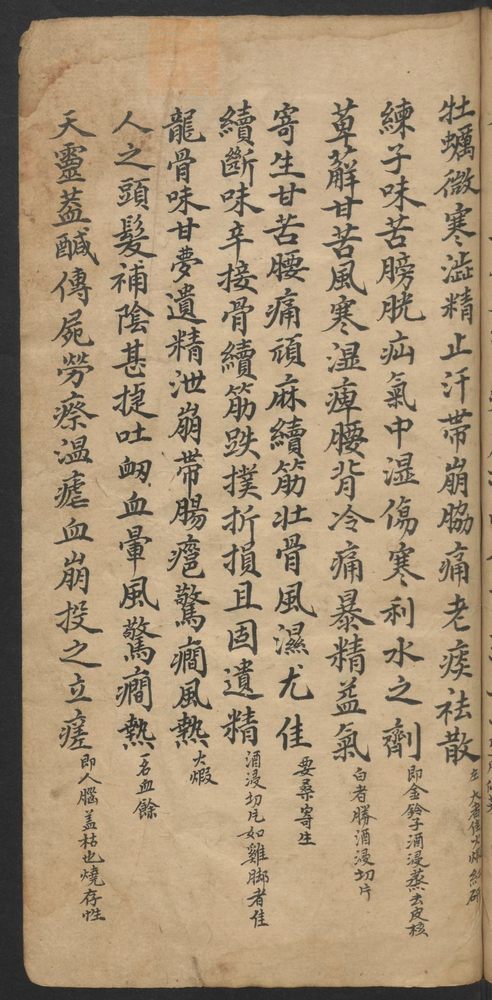 牡蠣微寒澁精止汗帶崩脇痛老痰袪散
左 大者佳火煅 研
練子味苦膀胱疝氣中湿傷寒利水之劑
即金鈴子酒浸蒸去皮核
萆薢甘苦風寒湿痺腰背冷痛暴精益氣
白者勝酒浸切片
寄生甘苦腰痛頑麻續筋壯骨風濕尤佳
要桑寄生
續斷味辛接骨續筋跌撲折損且固遺精
酒浸切片如雞脚者佳
龍骨味甘夢遺精泄崩帶腸癰驚癇風熱
火煅
人之頭髮補陰甚捷吐衂血暈風驚癇熱
一名血餘
天靈蓋鹹傳屍勞瘵温瘧血崩投之立瘥
即人腦盖枯也燒存性